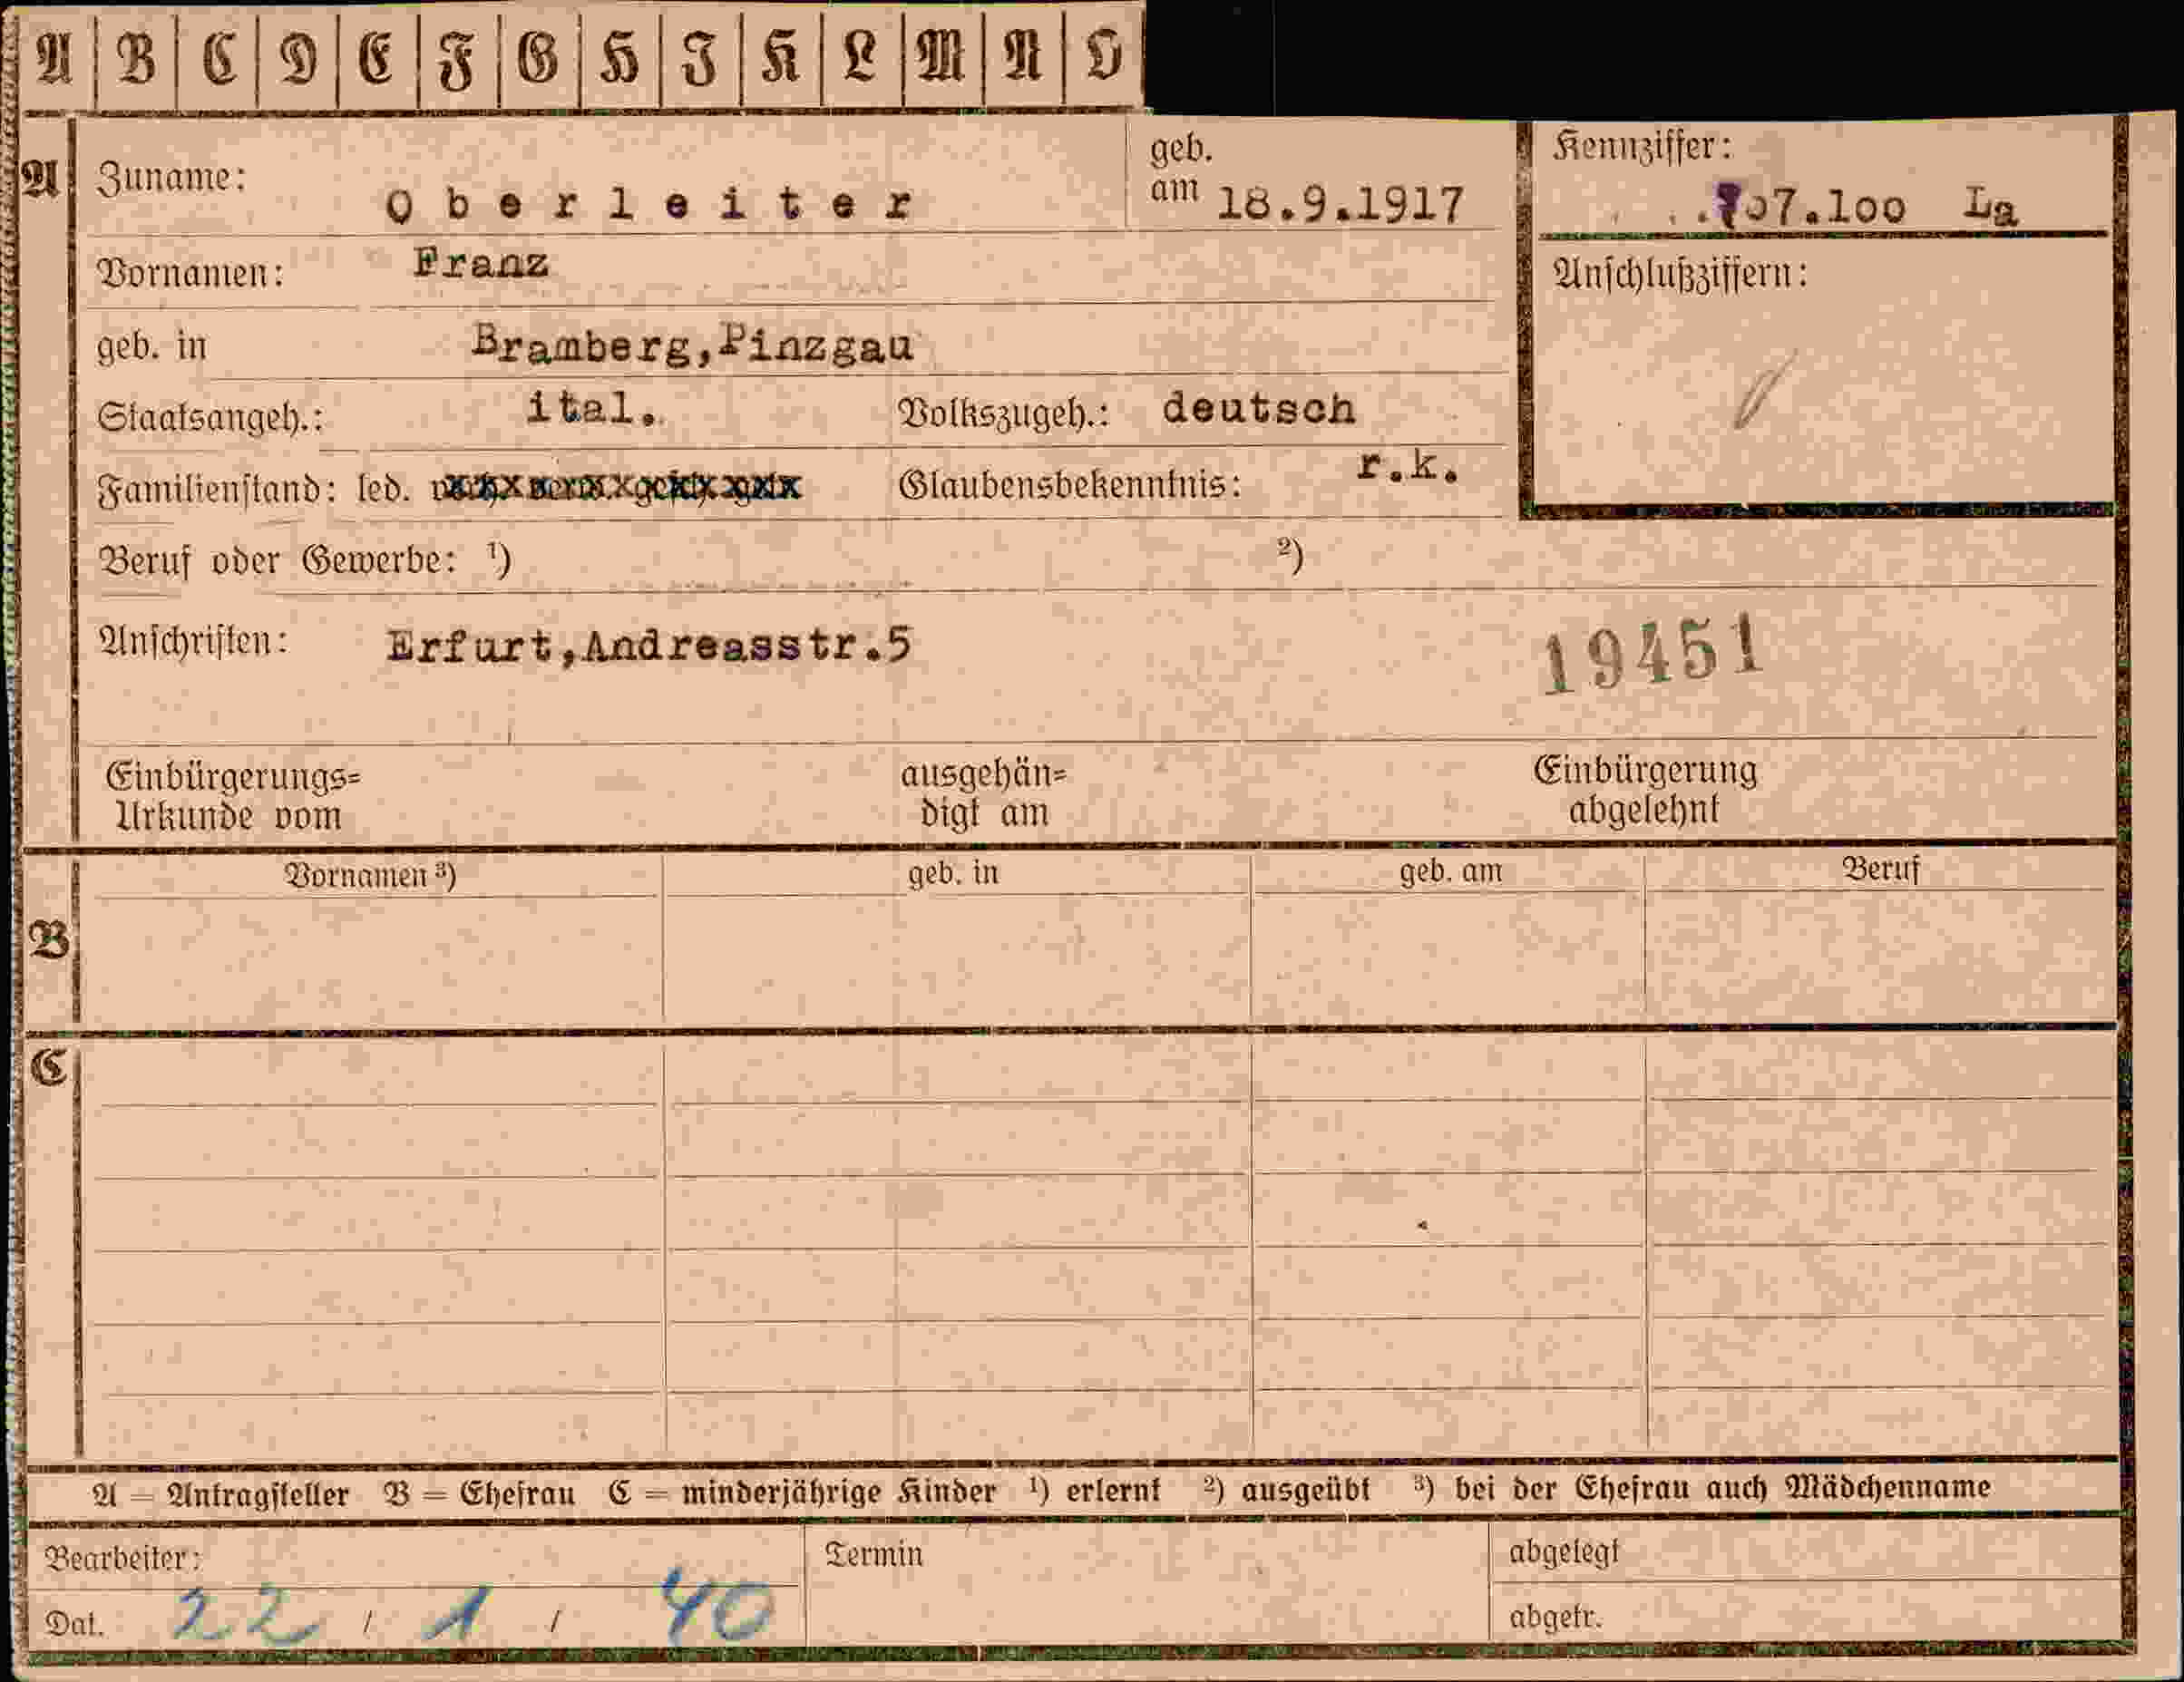 A B C D E F G H I K L M N O
A
Zuname: Oberleiter
geb. am 18.9.1917
Kennziffer: 07.100 La
Vornamen: Franz
Anschlußziffern:
geb. in Bramberg,Pinzgau
Staatsangeh.: ital. Volkszugeh.: deutsch
Familienstand: led. Glaubensbekenntnis: r.k.
Beruf oder Gewerbe: ¹) ²)
Anschriften: Erfurt,Andreasstr.5
19451
Einbürgerungs= ausgehän= Einbürgerung
Urkunde vom digt am abgelehnt
Vornamen ³) geb. in geb. am Beruf
B
C
A = Antragsteller B = Ehefrau C = minderjährige Kinder ¹) erlernt ²) ausgeübt ³) bei der Ehefrau auch Mädchenname
Bearbeiter: Termin abgelegt
Dat. 22 / 1 / 40 abgetr.